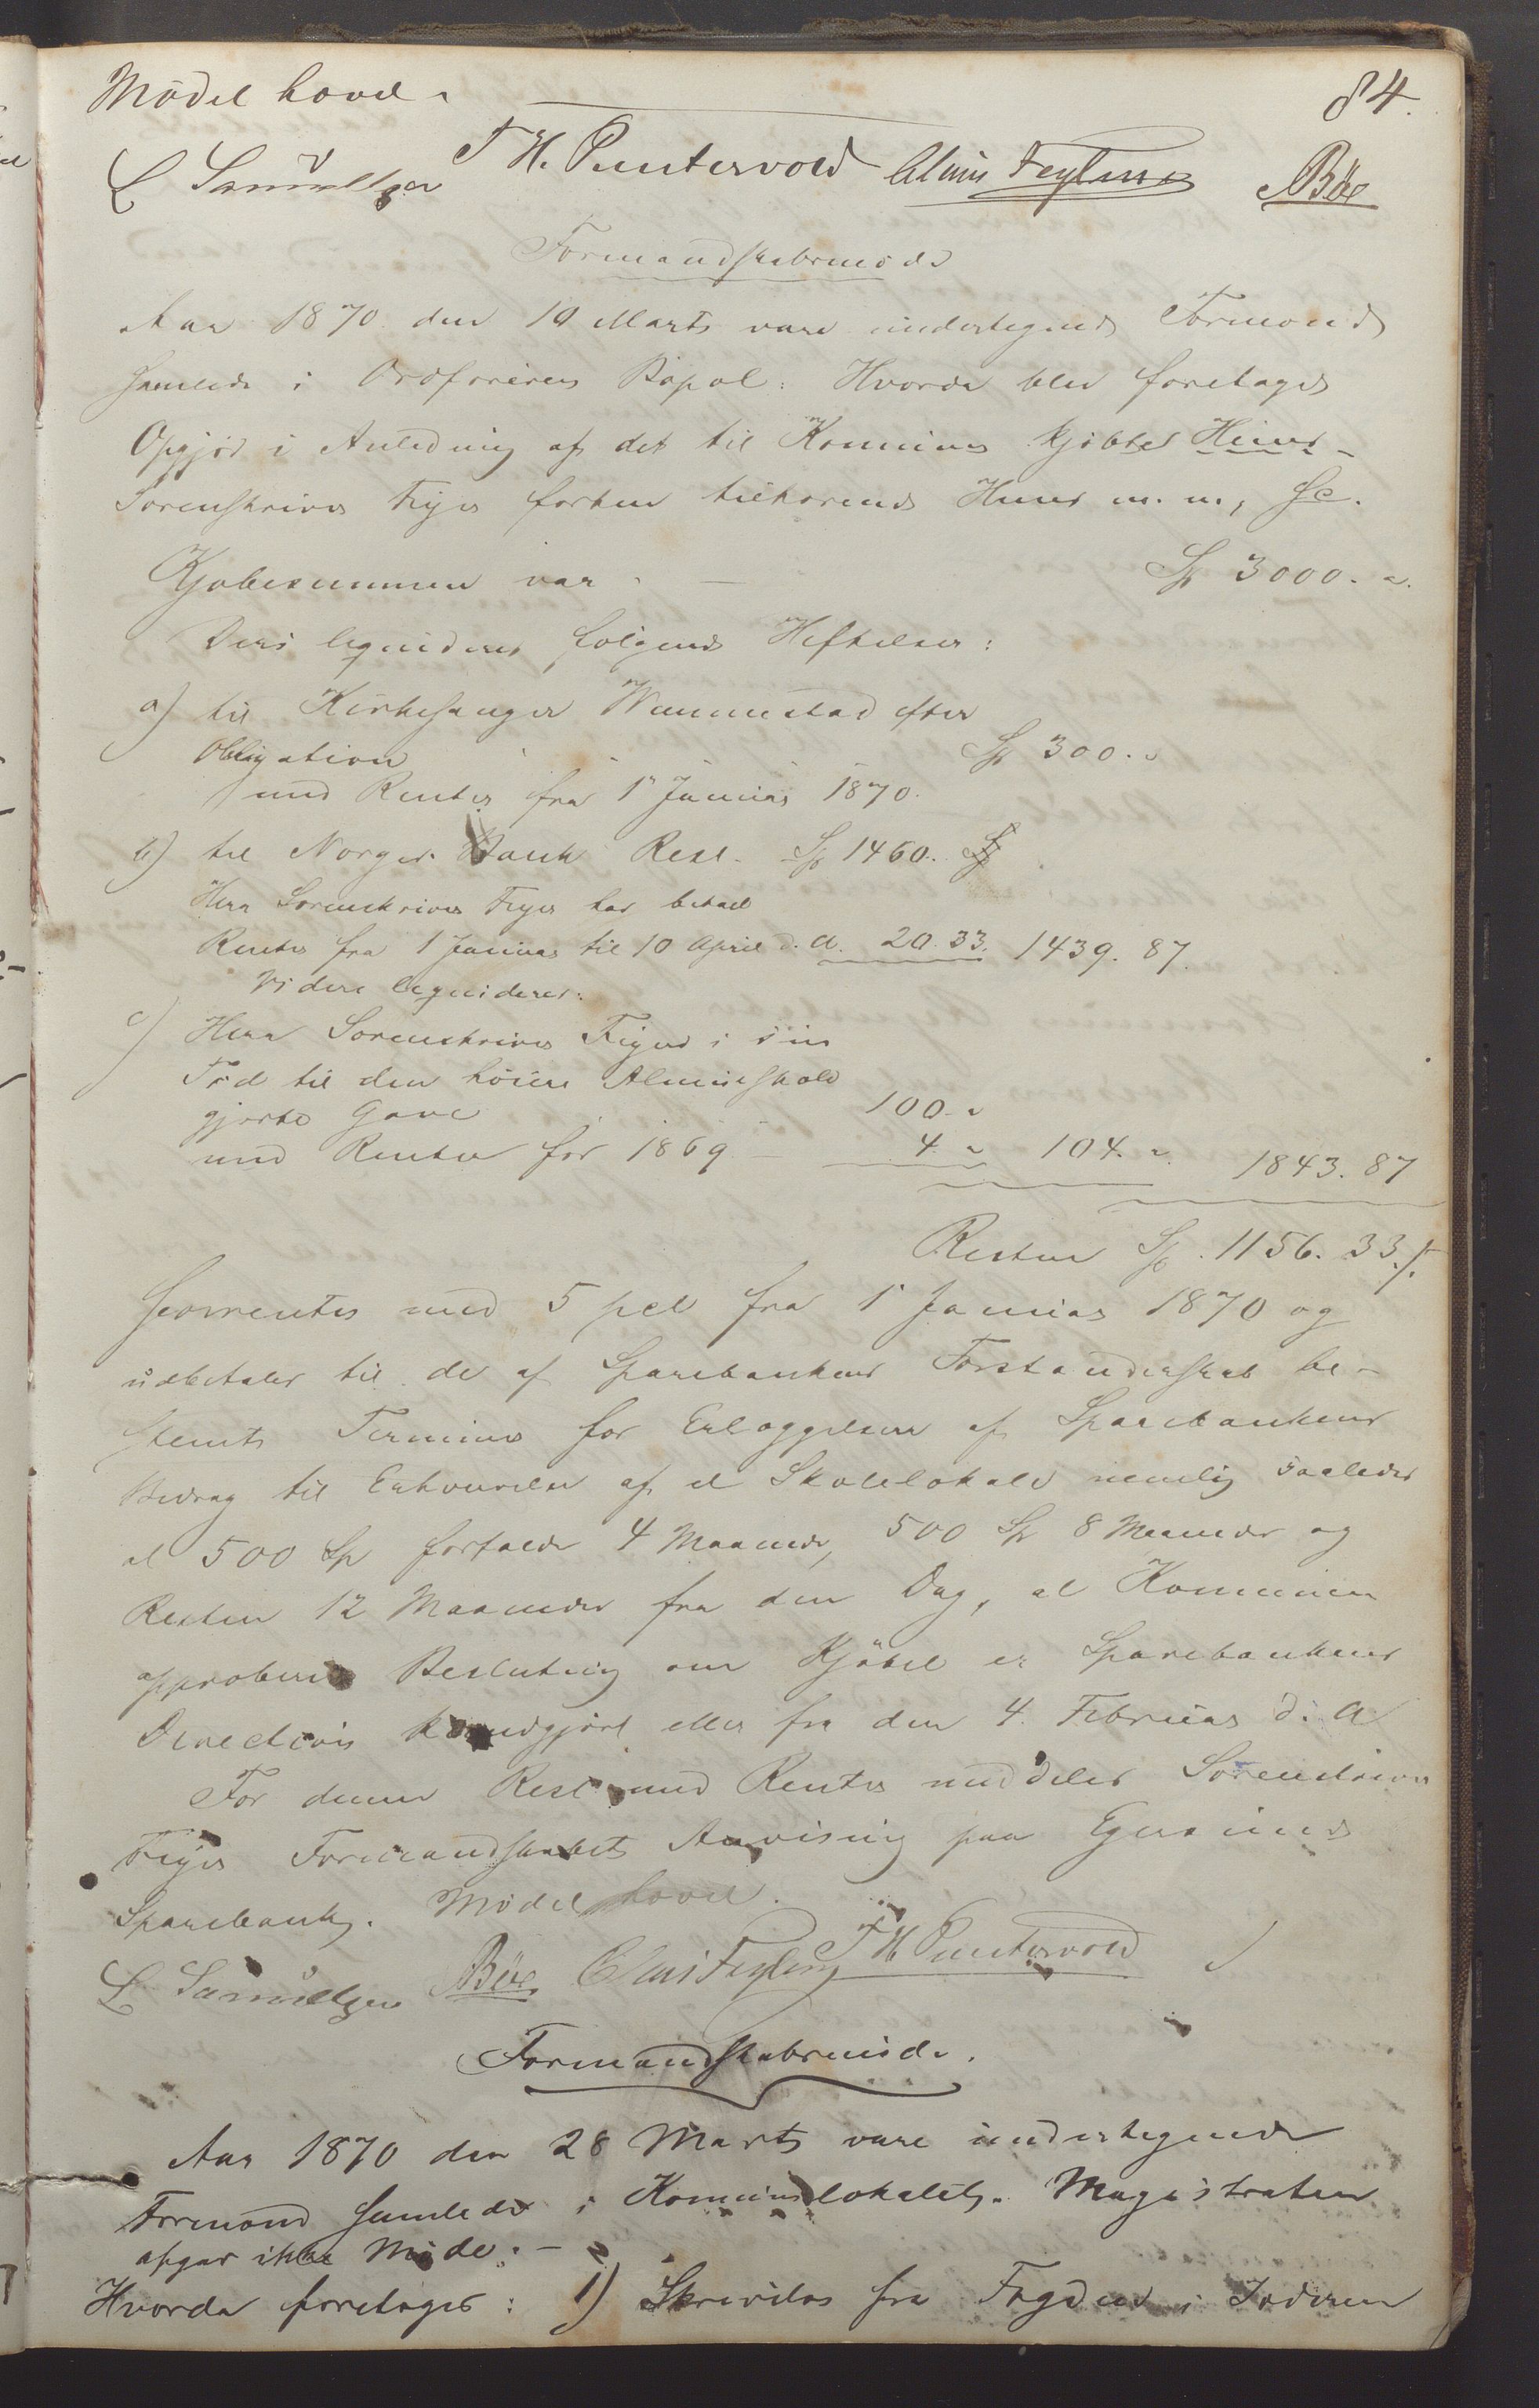 Mödet hævet.
84.
L Samuelsen T H. Puntervold Claus Feyling Böe
Formandskabsmöde
Aar 1870 den 19 Marts vare undertegnede Formænd
samlede i Ordförerens Bopæl. Hvorda blev foretaget
Opgjör i Anledning af det til Kommunen kjöbte Huus
Sorenskriver Feyer forhen tilhörende Huus m. m.,
Kjöbesummen var. — Sp 3000. "
Deri liquideres fölgende Heftelser:
a) til Kirkesanger Wammestad efter
Obligation Sp 300. "
med Renter fra 1 Januar 1870.
b) til Norges Bank Rest. Sp 1460.
Herr Sorenskriver Feyer har betalt
Renter fra 1 Januar til 10 April d. A. 20. 33. 1439. 87.
Videre liquideres:
c) Herr Sorenskriver Feyers i sin
Tid til den höiere Almueskole
gjorte Gave 100. "
med Renter for 1869 — 4 " 104. " 1843. 87
Resten Sp. 1156. 33 ./.
forrentes med 5 pCt fra 1 Januar 1870 og
udbetales til de af Sparebankens Forstanderskab be-
stemte Terminer for Erlæggelsen af Sparebankens
Bidrag til Erhvervelse af et Skolelokale nemlig saaledes
at 500 Sp forfalder 4 Maaneder, 500 Sp 8 Maaneder og
Resten 12 Maaneder fra den Dag, at Kommunens
approberede Beslutning om Kjöbet er Sparebankens
Direction kundgjort eller fra den 4 Februar d. A
For denne Rest med Renter meddeles Sorenskriver
Feyer Formandskabets Anvisning paa Egersunds
Sparebank. Mödet hævet.
L Samuelsen Böe Claus Feyling T H Puntervold
Formandskabsmöde.
Aar 1870 den 28 Marts vare undertegnede
Formænd samlede i Kommunelokalet. Magistraten
afgav ikke Möde. —
Hvorda foretoges: 1) Skrivelse fra Fogden i Jæderen